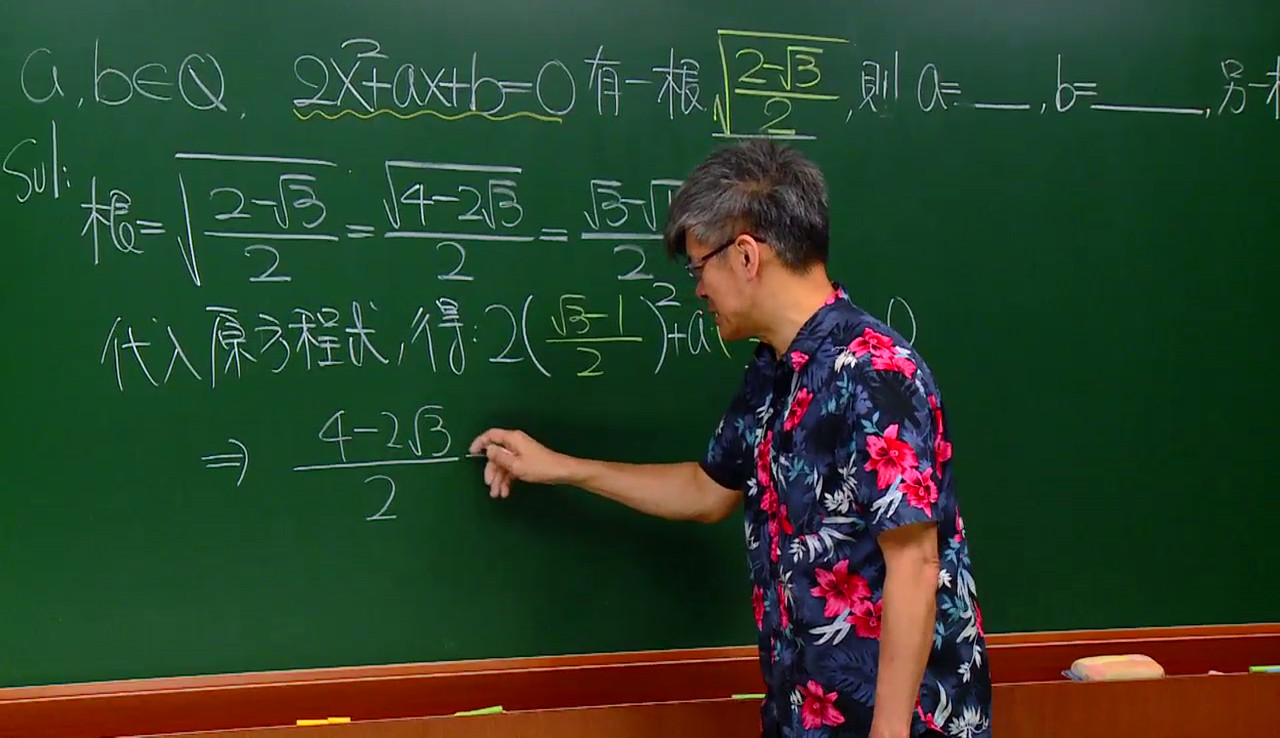 a,b∈Q, 2x²+ax+b=0有一根√((2-√3)/2),則a=___,b=____,另一
Sol: 根=√((2-√3)/2)=√(4-2√3)/2=(√3-√1)/2
代入原方程式,得:2((√3-1)/2)²+a( 0
⇒ (4-2√3)/2